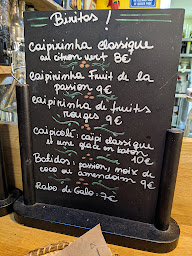 Biritas !
caipirinha classique
au citron vert 8€
caipirinha Fruit de la
passion 9€
caipirinha di fruits
rouges 9€
caipicolé : caipi classique
et une glace en baton
10€
Batidas : passion, noix de
coco ou amendoim
9€
Rabo de Galo : 7€